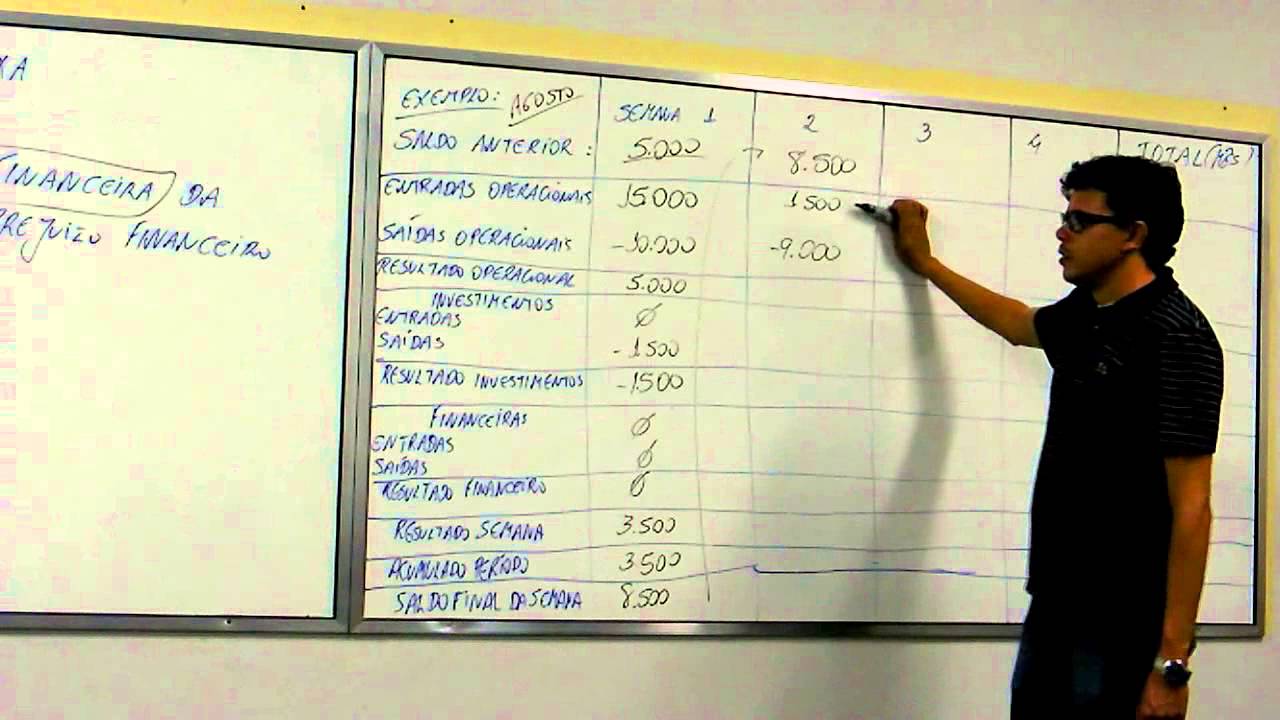 XA
FINANCEIRA DA
PREJUIZO FINANCEIRO
EXEMPLO: AGOSTO SEMANA 1 2 3 4 TOTAL (MÊS)
SALDO ANTERIOR: 5.000 → 8.500
ENTRADAS OPERACIONAIS 15000 1500
SAÍDAS OPERACIONAIS -10.000 -9.000
RESULTADO OPERACIONAL 5.000
INVESTIMENTOS
ENTRADAS Ø
SAÍDAS -1500
RESULTADO INVESTIMENTOS -1500
FINANCEIRAS
ENTRADAS Ø
SAÍDAS Ø
RESULTADO FINANCEIRO Ø
RESULTADO SEMANA 3.500
ACUMULADO PERÍODO 3500
SALDO FINAL DA SEMANA 8.500